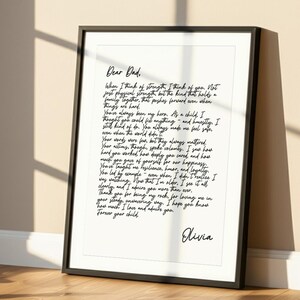 Dear Dad,
When I think of strength, I think of you. Not
just physical strength, but the kind that holds a
family together, that pushes forward even when
things are hard.
You've always been my hero. As a child, I
thought you could fix anything - and honestly, I
still kind of do. You always made me feel safe,
even when the world didn't.
Your words were few, but they always mattered.
Your actions, though, spoke volumes. I saw how
hard you worked, how deeply you cared, and how
much you gave of yourself for our happiness.
You've taught me resilience, honor, and loyalty.
You led by example - even when I didn't realize I
was watching. Now that I'm older, I see it all
clearly, and I admire you more than ever.
Thank you for being my rock, for loving me in
your steady, unwavering way. I hope you know
how much I love and admire you.
Forever your child,
Olivia